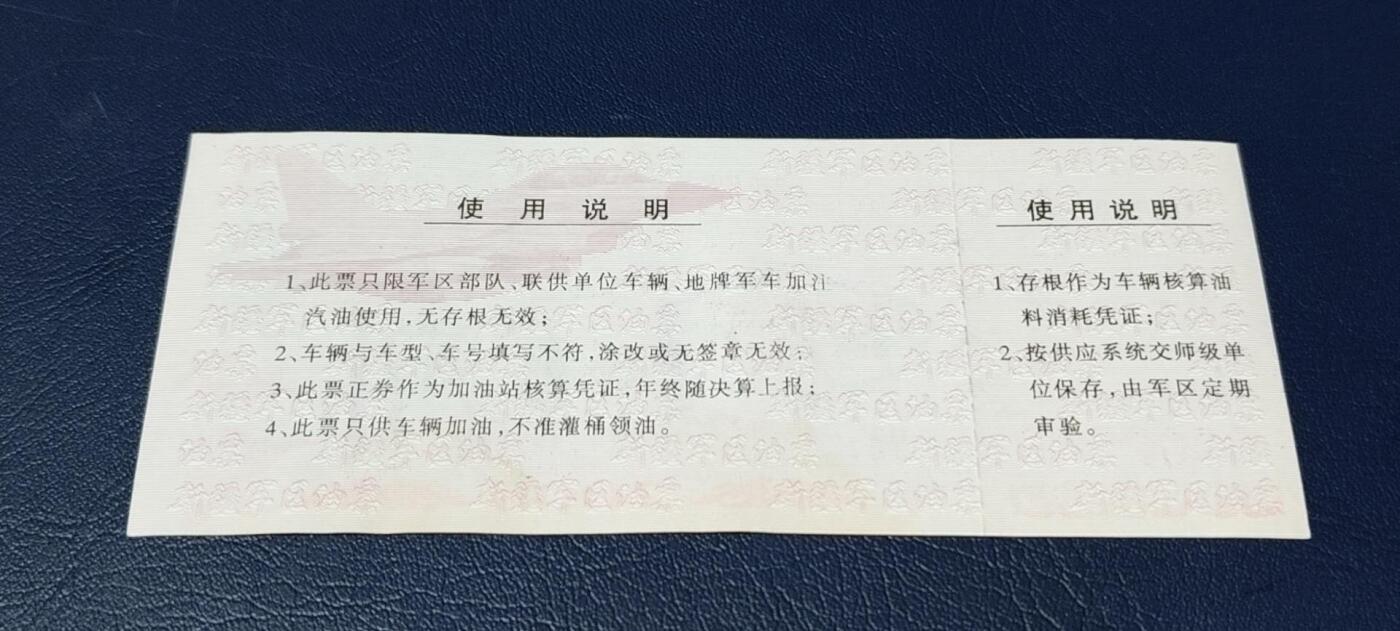 使用说明
1、此票只限军区部队、联供单位车辆、地牌军车加注
汽油使用,无存根无效;
2、车辆与车型、车号填写不符,涂改或无签章无效;
3、此票正券作为加油站核算凭证,年终随决算上报;
4、此票只供车辆加油,不准灌桶领油。
使用说明
1、存根作为车辆核算油
料消耗凭证;
2、按供应系统交师级单
位保存,由军区定期
审验。
新疆军区油票